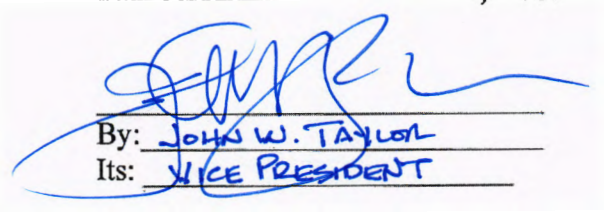 By: JOHN W. TAYLOR
Its: VICE PRESIDENT